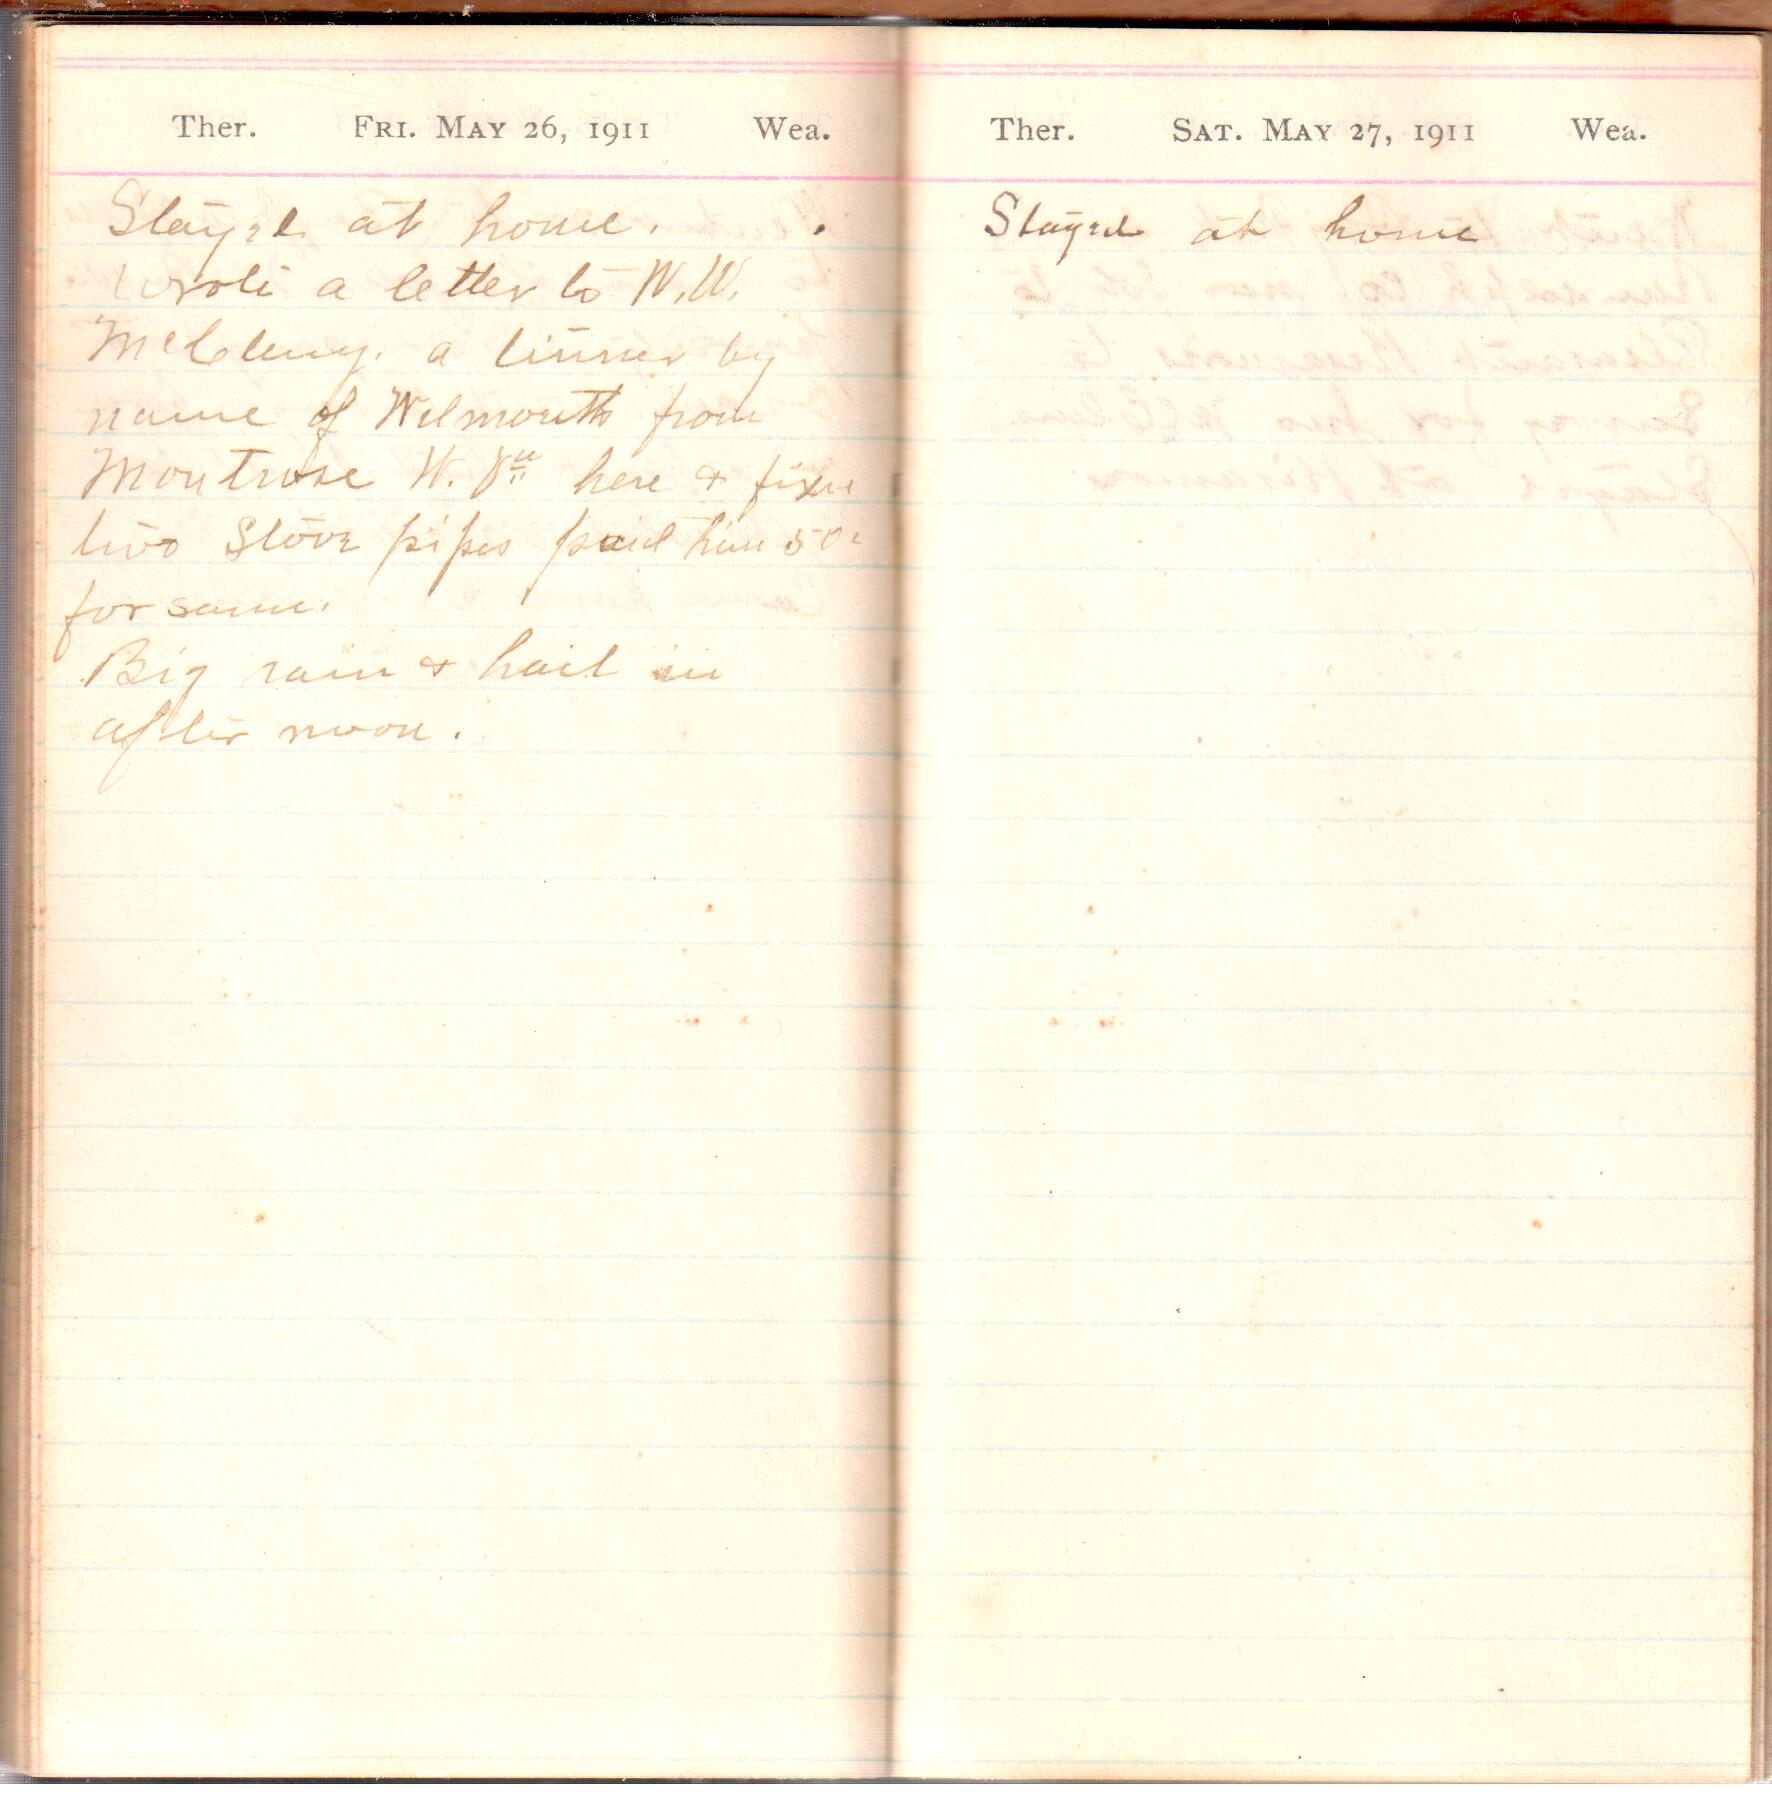 Ther. Fri. May 26, 1911 Wea.
Stayed at home.
wrote a letter to W.W.
McCleny. a tinner by
name of Wilmouth from
Montrose W. Va here & fixed
two Stove pipes paid him 50c
for same.
Big rain & hail in
after noon.
Ther. Sat. May 27, 1911 Wea.
Stayed at home